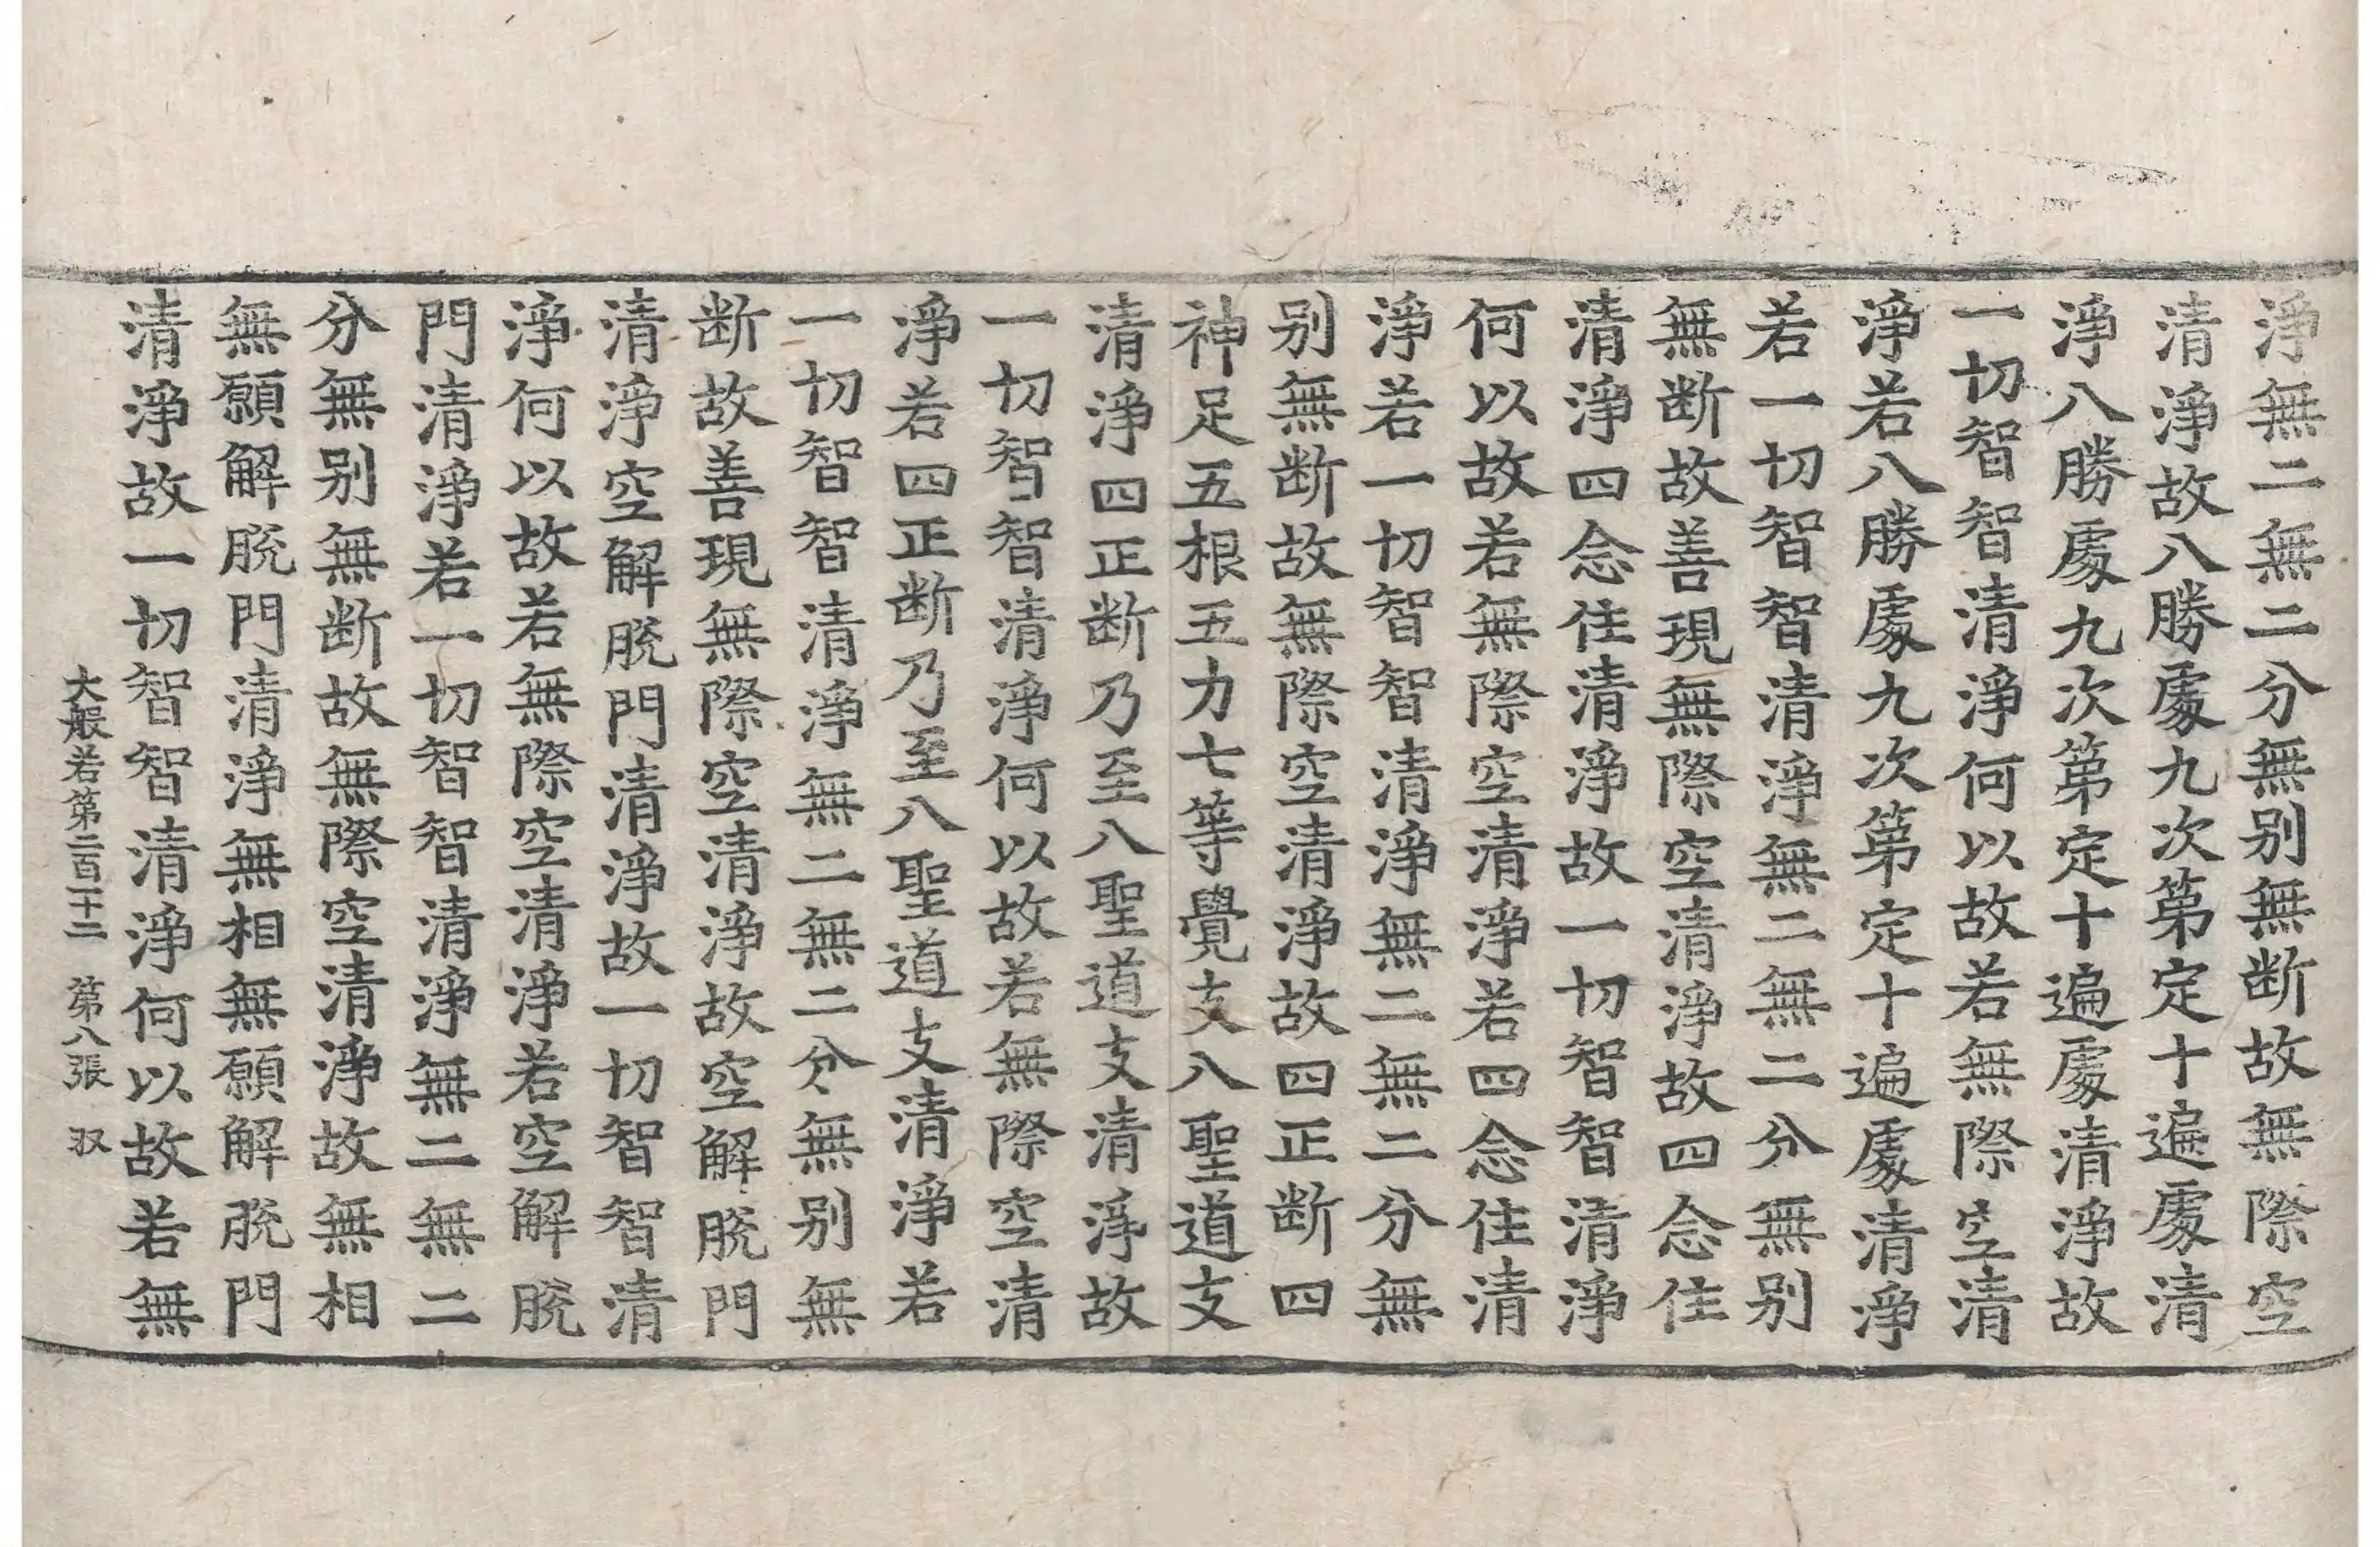 淨無二無二分無别無断故無際空
清淨故八勝處九次第定十遍處清
淨八勝處九次第定十遍處清淨故
一切智智清淨何以故若無際空清
淨若八勝處九次第定十遍處清淨
若一切智智清淨無二無二分無别
無断故善現無際空清淨故四念住
清淨四念住清淨故一切智智清淨
何以故若無際空清淨若四念住清
淨若一切智智清淨無二無二分無
别無断故無際空清淨故四正断四
神足五根五力七等覺支八聖道支
清淨四正断乃至八聖道支清淨故
一切智智清淨何以故若無際空清
淨若四正断乃至八聖道支清淨若
一切智智清淨無二無二分無别無
断故善現無際空清淨故空解脫門
清淨空解脫門清淨故一切智智清
淨何以故若無際空清淨若空解脫
門清淨若一切智智清淨無二無二
分無别無断故無際空清淨故無相
無願解脫門清淨無相無願解脫門
清淨故一切智智清淨何以故若無
大般若第二百二十二 第八張 𭀖